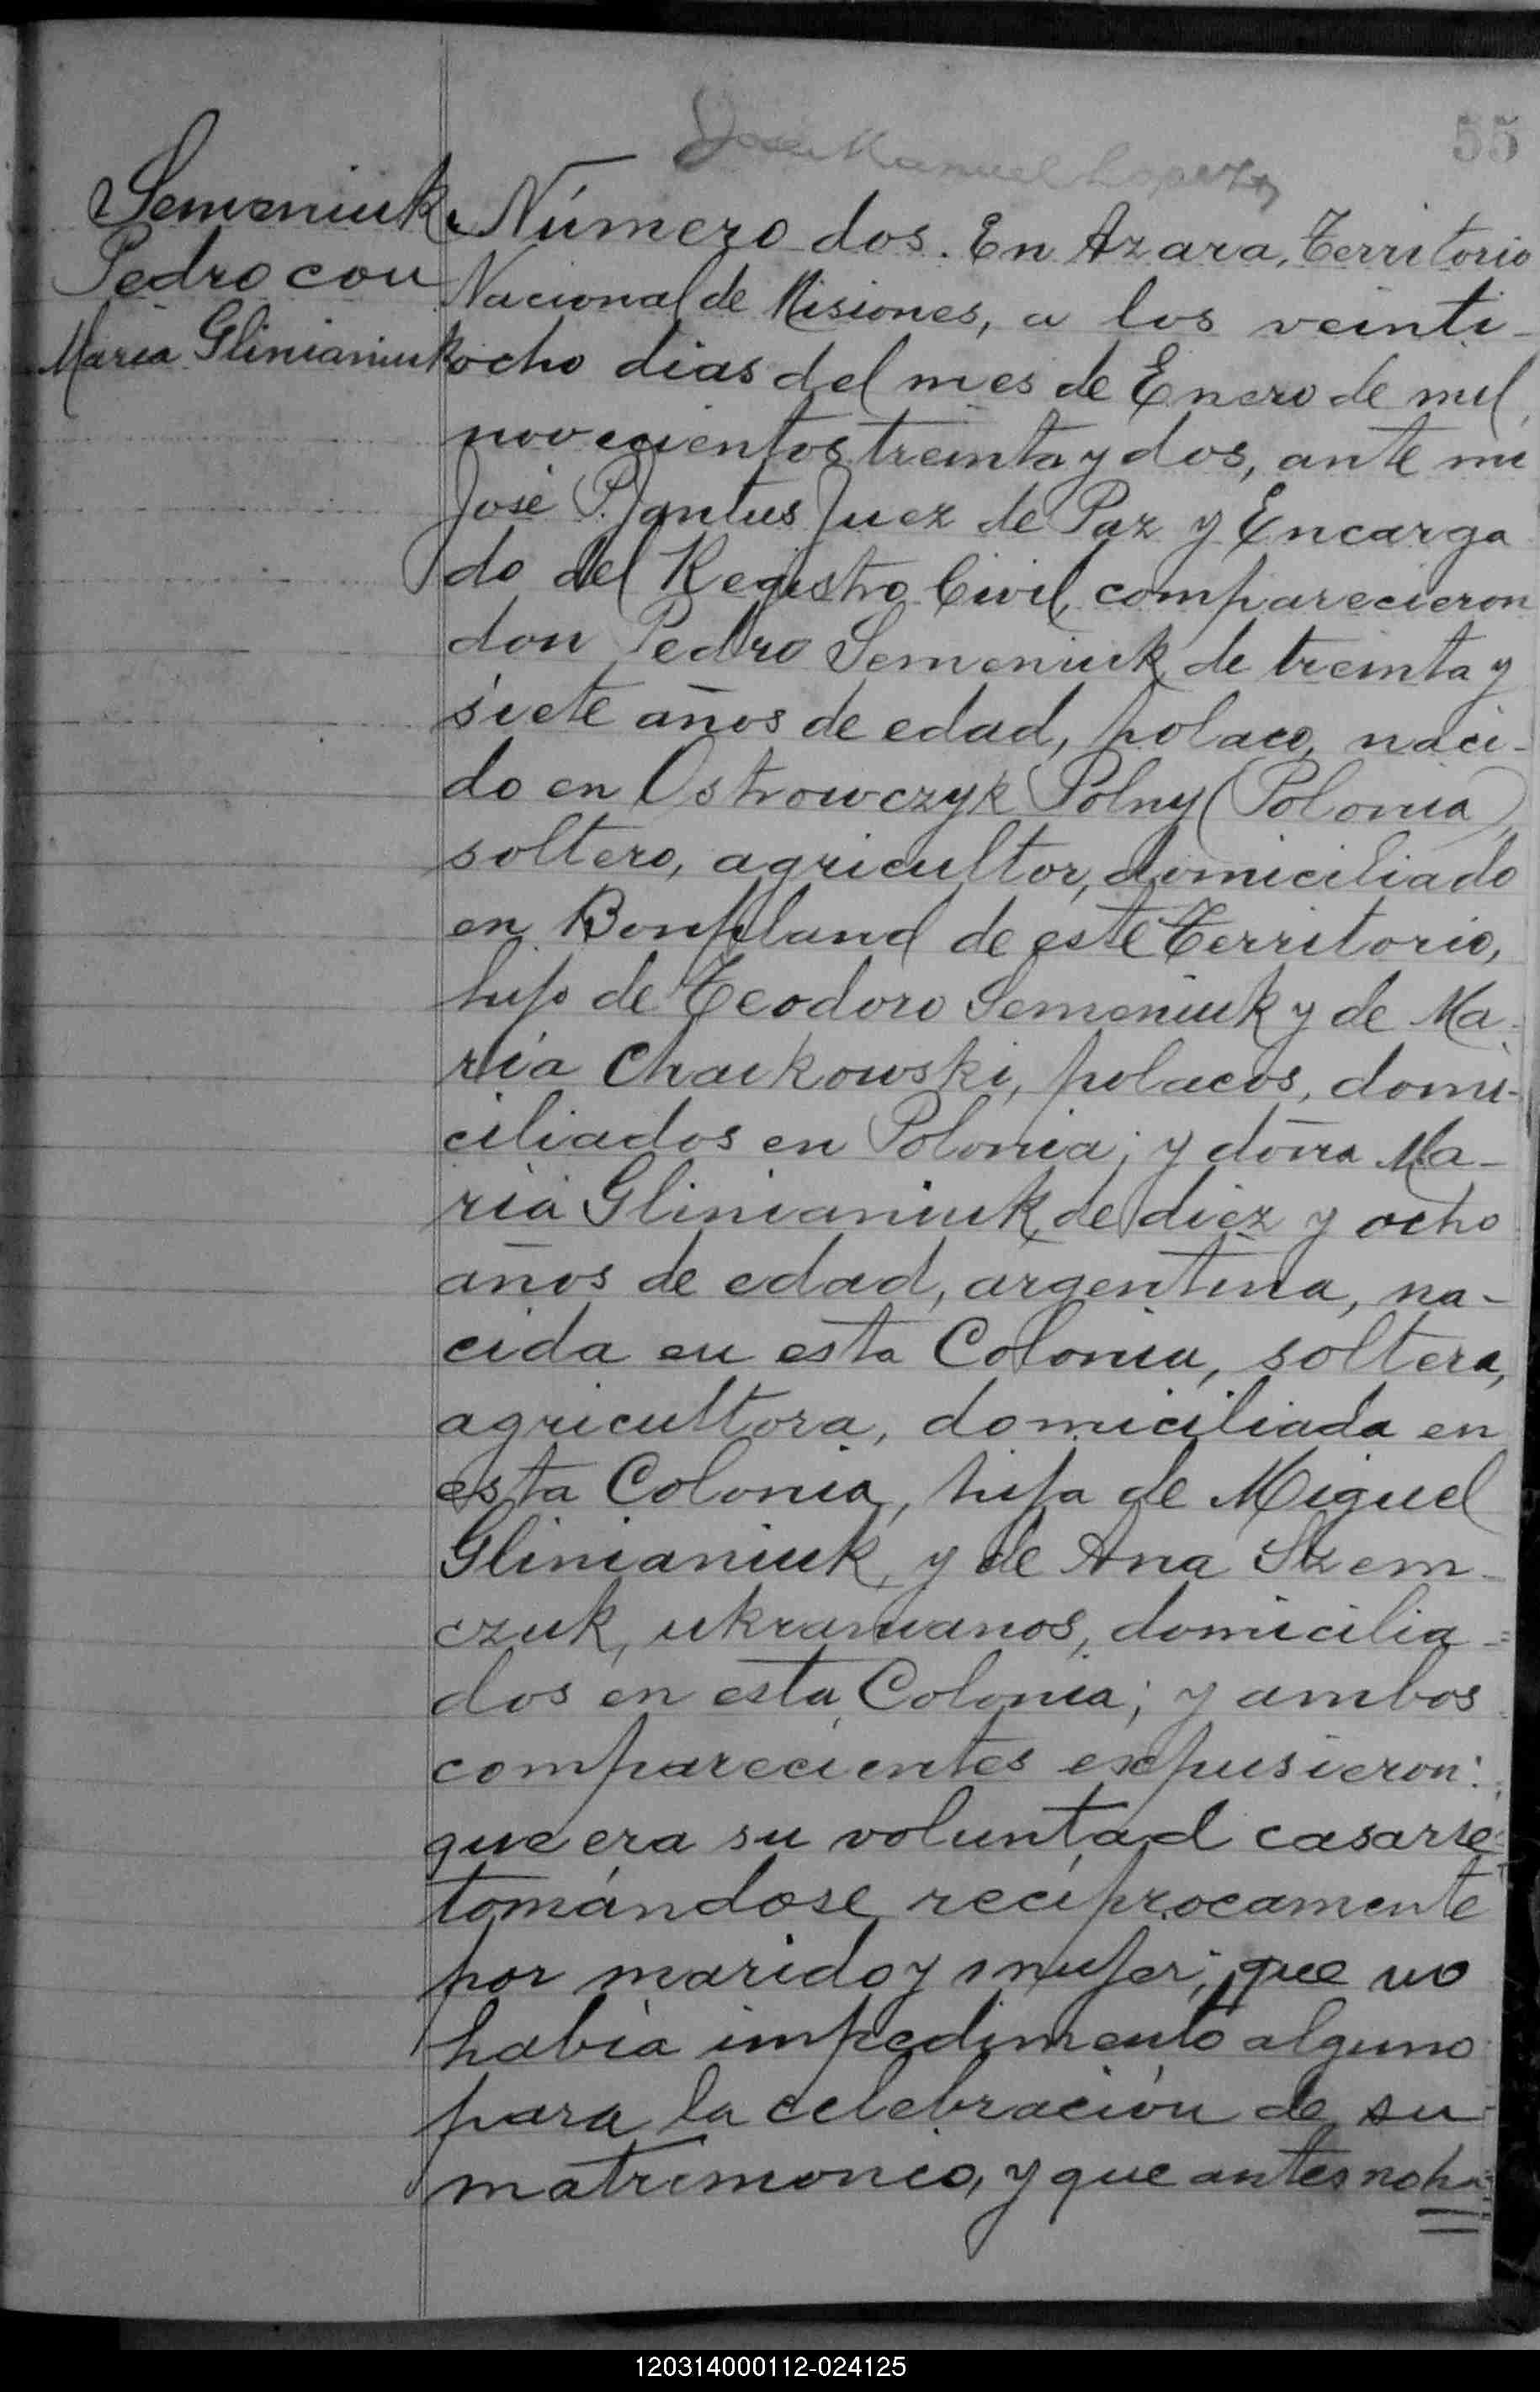 55
Jose Manuel Lopez
Semeniuk
Pedro con
Maria Glinianiuk
Número dos. En Azara, Territorio
Nacional de Misiones, a los veinti-
ocho dias del mes de Enero de mil
novecientos treinta y dos, ante mi
José P. Jantus Juez de Paz y Encarga
do del Registro Civil, comparecieron
don Pedro Semeniuk, de treinta y
siete años de edad, polaco, naci-
do en Ostrowczyk Polny (Polonia),
soltero, agricultor, domiciliado
en Bonpland de este Territorio,
hijo de Teodoro Semeniuk y de Ma-
ría Chaikowski, polacos, domi-
ciliados en Polonia; y doña Ma-
ría Glinianiuk, de diez y ocho
años de edad, argentina, na-
cida en esta Colonia, soltera,
agricultora, domiciliada en
esta Colonia, hija de Miguel
Glinianiuk, y de Ana Szem-
czuk, ukranianos, domicilia=
dos en esta Colonia; y ambos
comparecientes expusieron:
que era su voluntad casarse
tomándose recíprocamente
por marido y mujer; que no
había impedimento alguno
para la celebración de su
matrimonio, y que antes no ha=
120314000112-024125